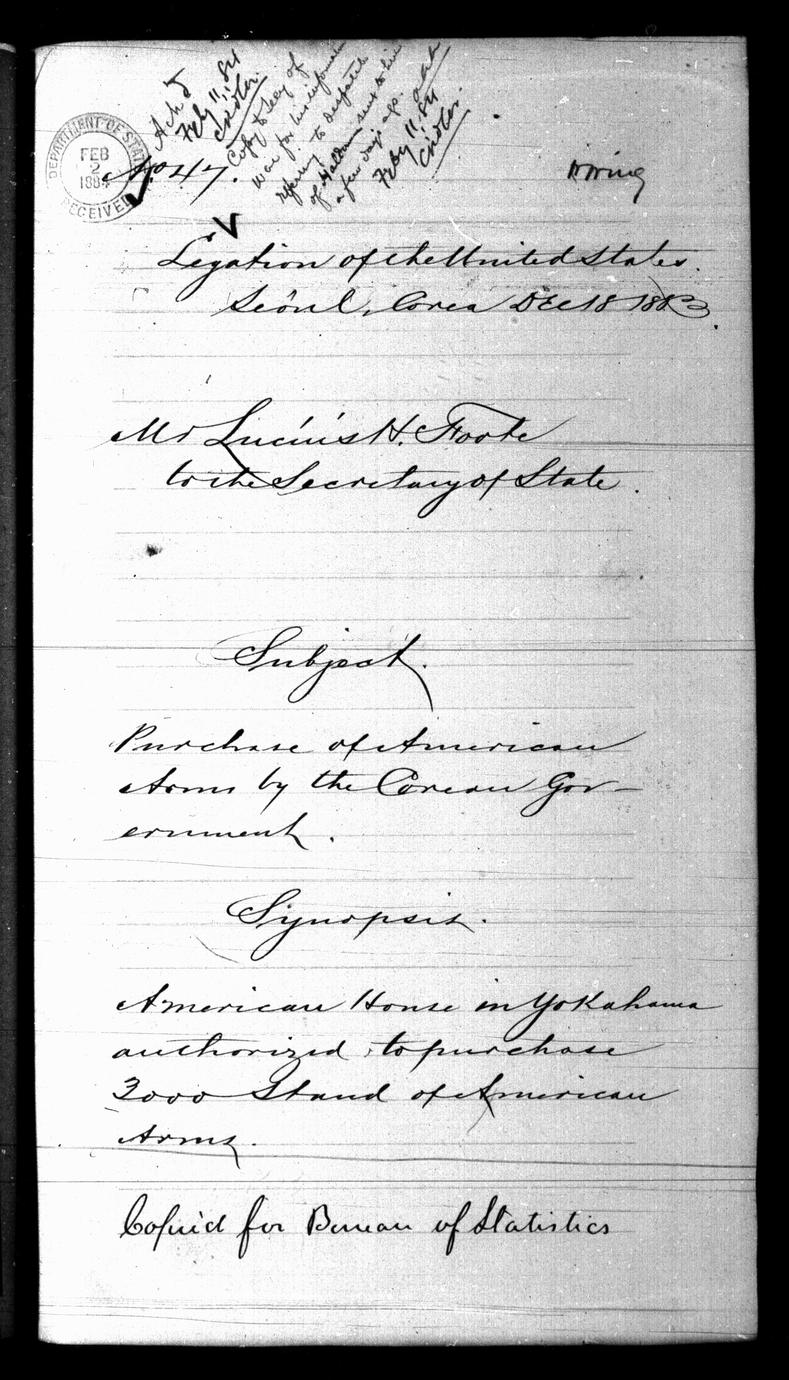 Ack'd
Feby 11, '84
Copy to Secy of
War for his information
referring to despatch
of
sent to him
a few days ago.
Feby 11, '84
DEPARTMENT OF STATE
FEB
2
1884
RECEIVED
No 47.
Legation of the United States.
Séoul, Corea Dec 18 1883.
Mr Lucius H. Foote
to the Secretary of State.
Subject.
Purchase of American
Arms by the Corean Gov-
ernment.
Synopsis.
American House in Yokahama
authorized to purchase
3000 Stand of American
Arms.
Copied for Bureau of Statistics